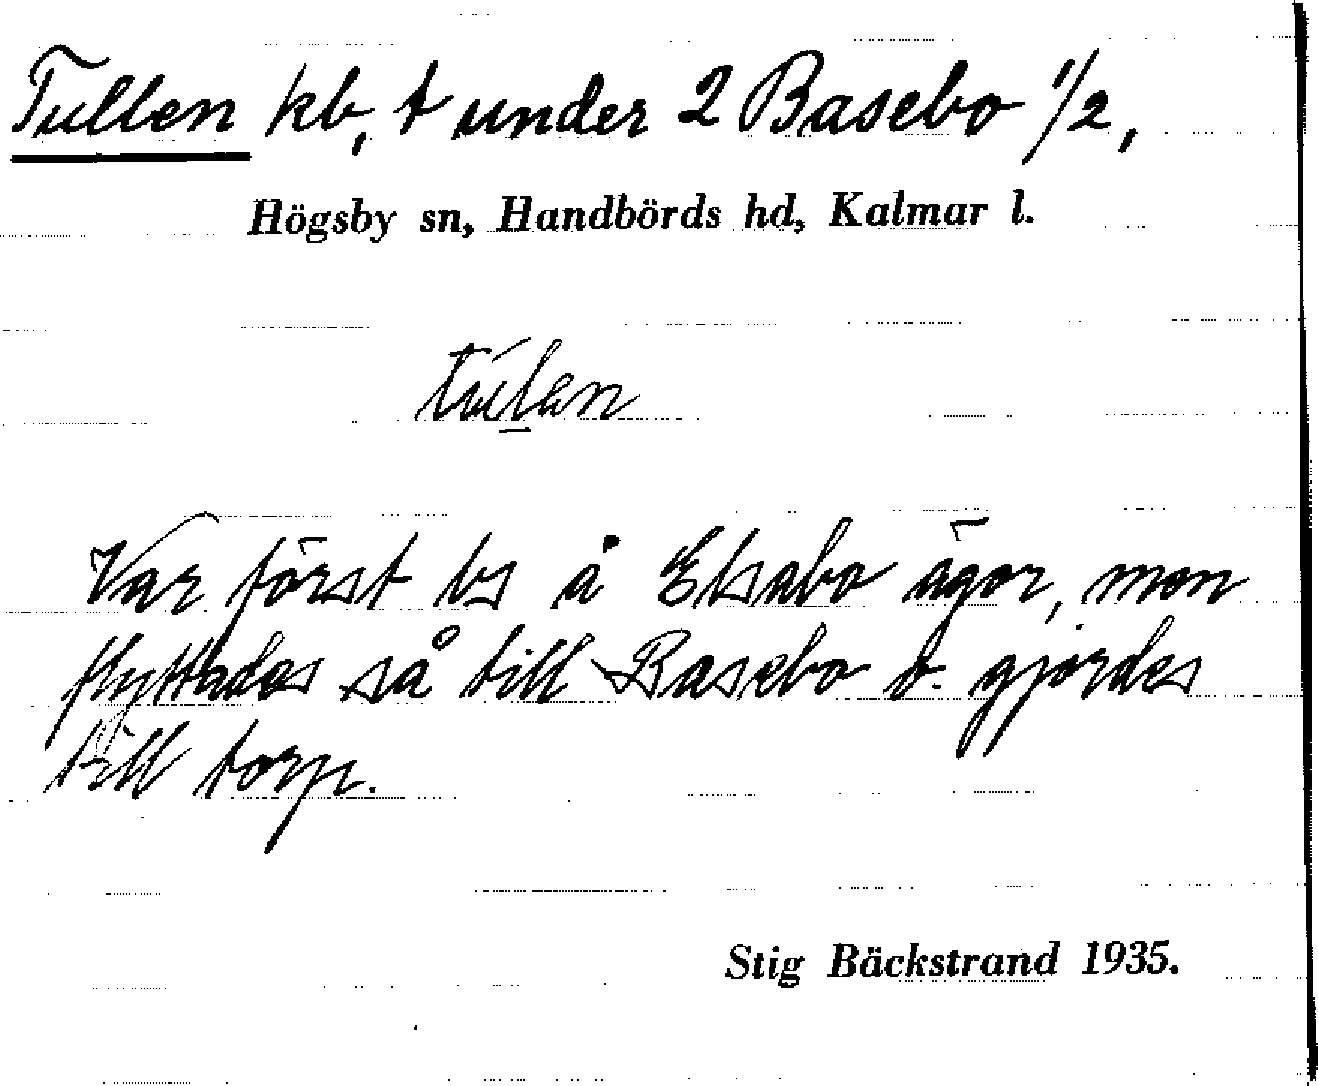 Tullen kb, t under 2 Basebo 1/2,
Högsby sn, Handbörds hd, Kalmar l.
Var först bs å Elsabo ägor, men
flyttades så till Basebo o. gjordes
till torp.
Stig Bäckstrand 1935.